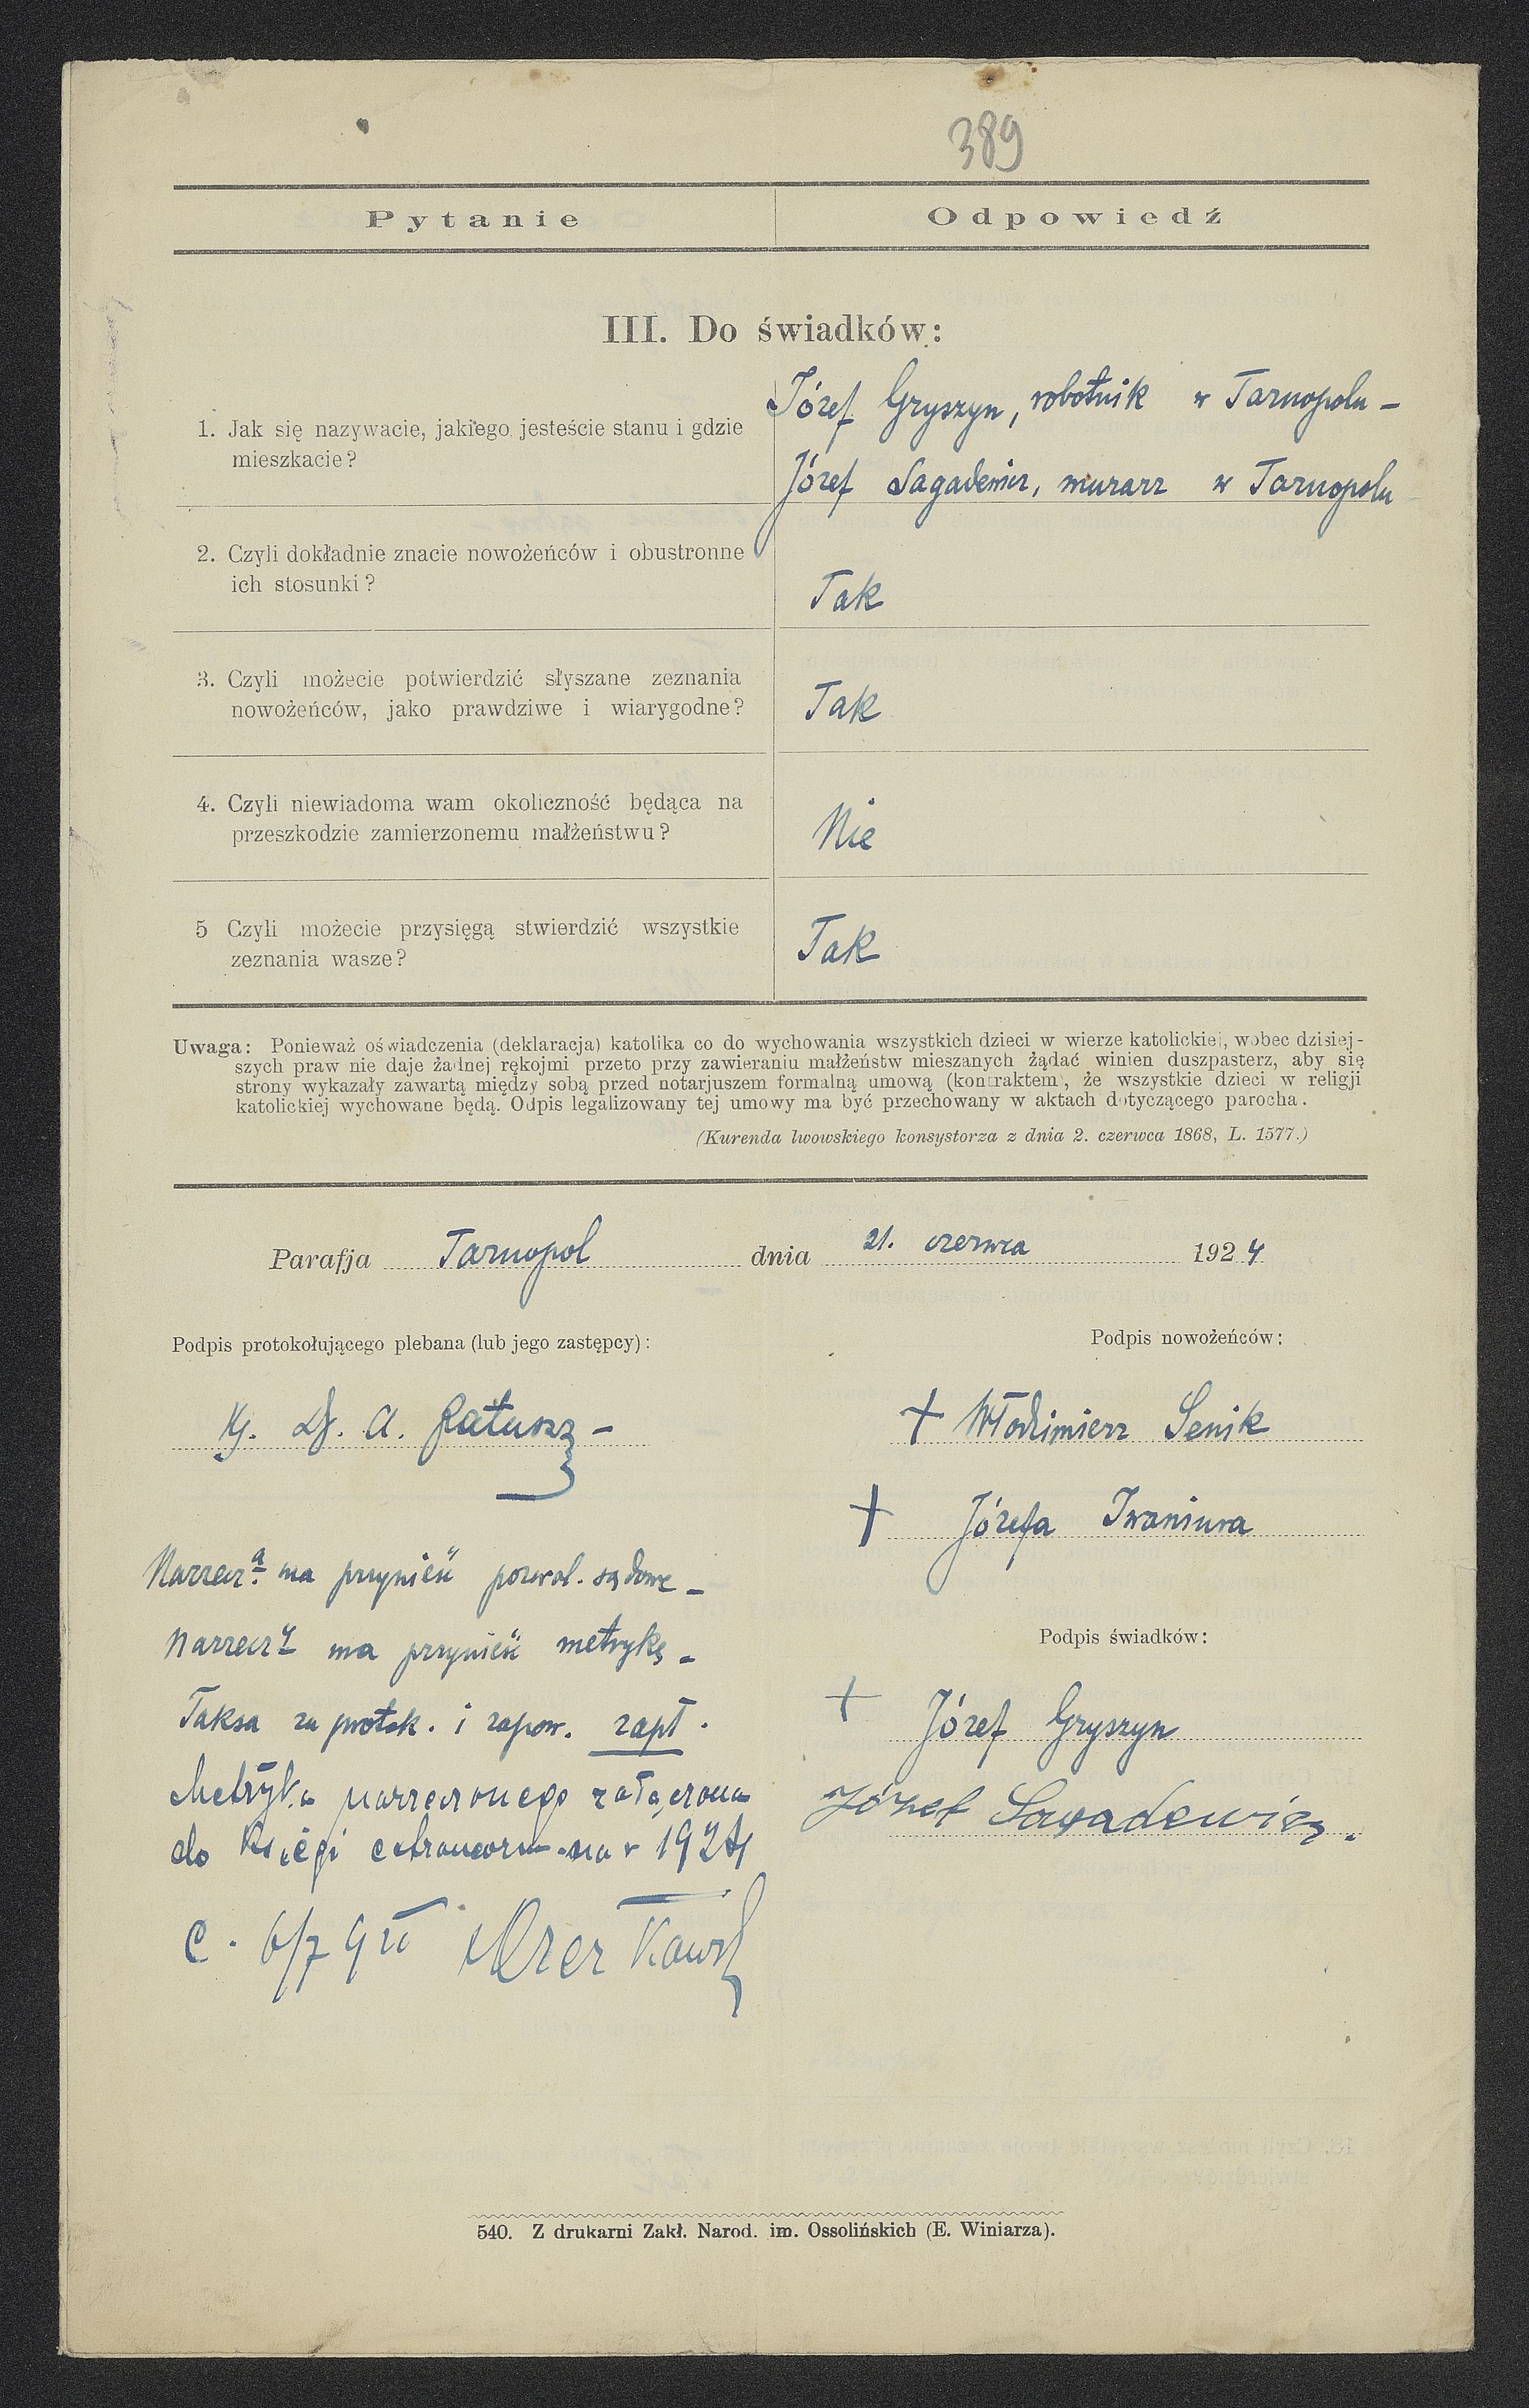 389
Pytanie
Odpowiedź
III. Do świadków:
1. Jak się nazywacie, jakiego jesteście stanu i gdzie
mieszkacie?
Józef Gryszyn, robotnik w Tarnopolu –
Józef Sagadewicz, murarz w Tarnopolu
2. Czyli dokładnie znacie nowożeńców i obustronne
ich stosunki?
Tak
3. Czyli możecie potwierdzić słyszane zeznania
nowożeńców, jako prawdziwe i wiarygodne?
Tak
4. Czyli niewiadoma wam okoliczność będąca na
przeszkodzie zamierzonemu małżeństwu?
Nie
5 Czyli możecie przysięgą stwierdzić wszystkie
zeznania wasze?
Tak
Uwaga: Ponieważ oświadczenia (deklaracja) katolika co do wychowania wszystkich dzieci w wierze katolickiej, wobec dzisiej-
szych praw nie daje żadnej rękojmi przeto przy zawieraniu małżeństw mieszanych żądać winien duszpasterz, aby się
strony wykazały zawartą między sobą przed notarjuszem formalną umową (kontraktem), że wszystkie dzieci w religji
katolickiej wychowane będą. Odpis legalizowany tej umowy ma być przechowany w aktach dotyczącego parocha.
(Kurenda lwowskiego konsystorza z dnia 2. czerwca 1868, L. 1577.)
Parafja Tarnopol dnia 21. czerwca 1924
Podpis protokołującego plebana (lub jego zastępcy):
Podpis nowożeńców:
X. Dr. A. Ratusz –
+ Włodzimierz Senik
+ Józefa Iwaniura
Narzecz.ª ma przynieść pozwol. sądowe –
Narzeczy ma przynieść metrykę –
Taksa za protok. i zapow. zapł.
Metryka narzeczonego załączona
do księgi extraneorum na r 1924
Podpis świadków:
+ Józef Gryszyn
Józef Sagadewicz.
540. Z drukarni Zakł. Narod. im. Ossolińskich (E. Winiarza).